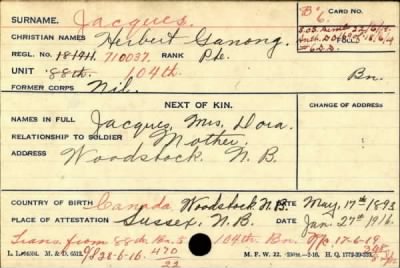 SURNAME. Jacques.
CARD NO.
CHRISTIAN NAMES Herbert Ganong.
B/6.
REGL. NO. 710037. RANK Pte.
UNIT 88th. 104th. Bn.
FORMER CORPS Nil.
NEXT OF KIN.
CHANGE OF ADDRESS
NAMES IN FULL Jacques, Mrs, Dora.
RELATIONSHIP TO SOLDIER Mother.
ADDRESS Woodstock. N.B.
COUNTRY OF BIRTH Canada Woodstock N.B. DATE May, 17th 1893
PLACE OF ATTESTATION Sussex, N.B. DATE Jan, 27th 1916.
Trans. from 88th Bn. 104th Bn. 17-6-19
M. & D. 28-6-16. 470
22
M. F. W. 22. H. Q. 1772-39-339.